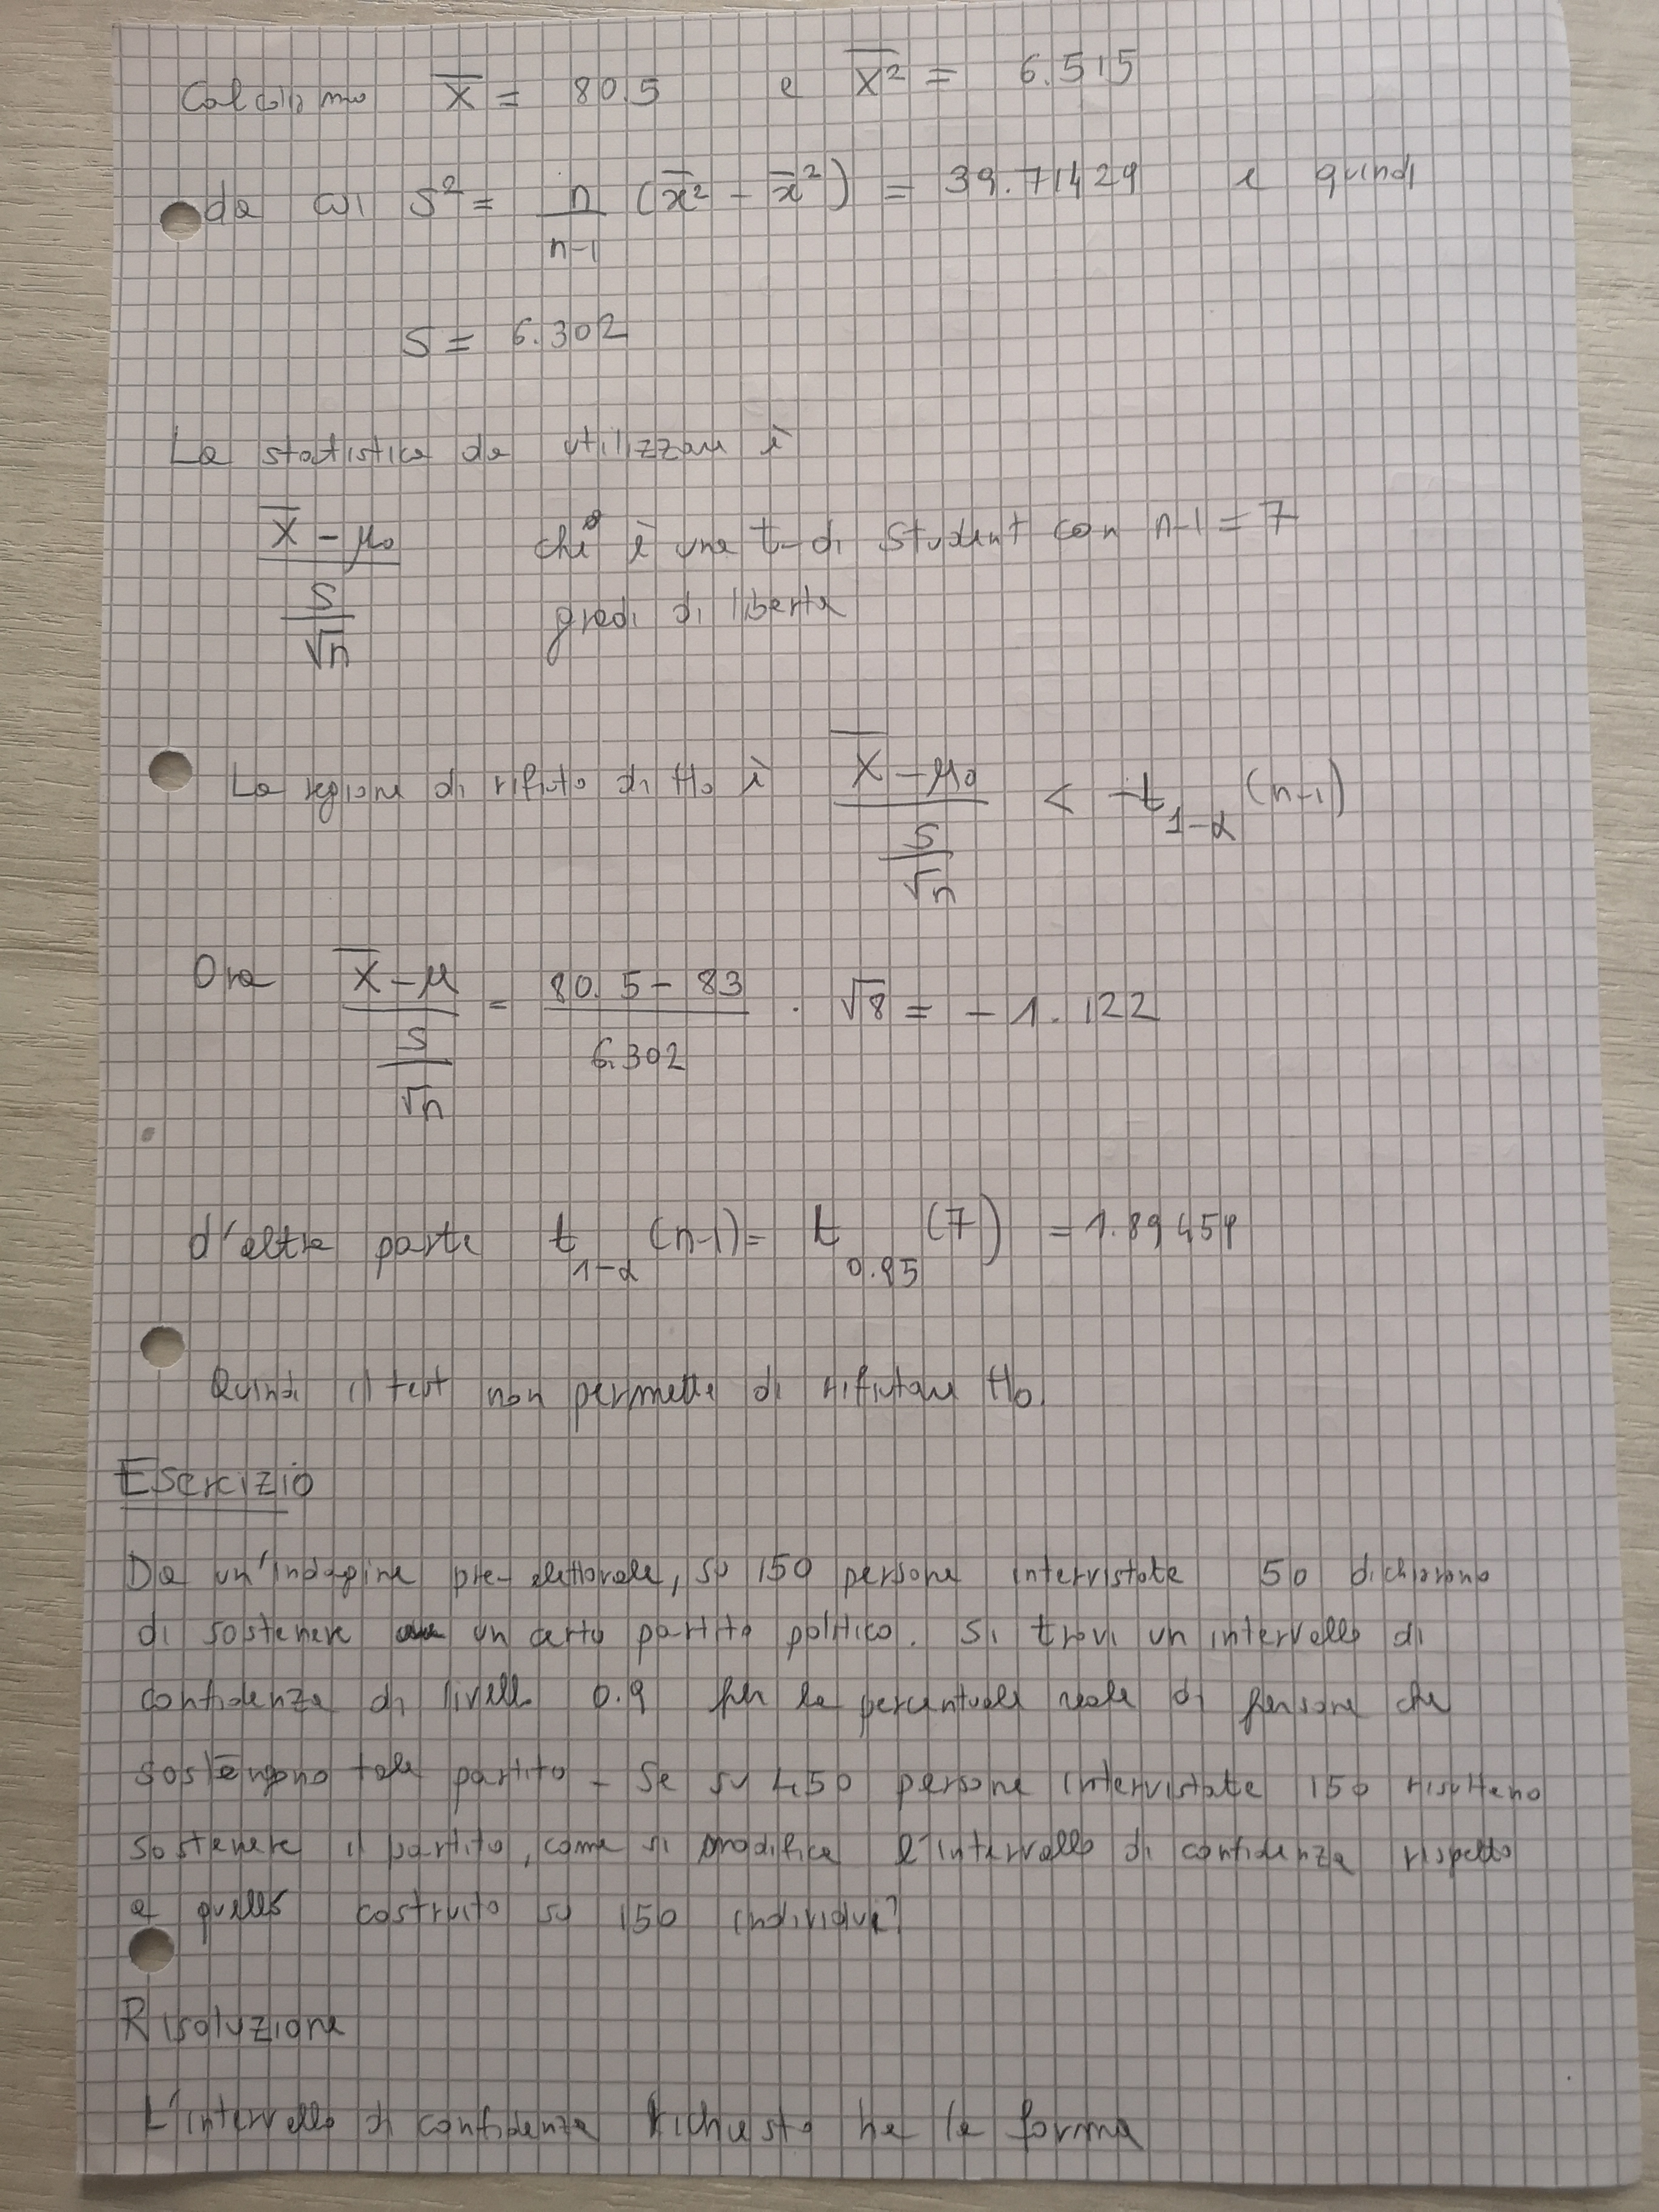 Calcoliamo X̅ = 80.5 e X̅² = 6.515
da cui S² = n/(n-1) (x̅² - x̅²) = 39.71429 e quindi
S = 6.302
La statistica da utilizzare è
(X̅ - μ₀)/(S/√n) che è una t-di Student con n-1 = 7
gradi di libertà
La regione di rifiuto di H₀ è (X̅ - μ₀)/(S/√n) < -t_{1-α} (n-1)
Ora (X̅ - μ)/(S/√n) = (80.5 - 83)/6.302 · √8 = -1.122
d'altra parte t_{1-α} (n-1) = t_{0.95} (7) = 1.89458
Quindi il test non permette di rifiutare H₀.
Esercizio
Da un'indagine pre-elettorale, su 150 persone intervistate 50 dichiarano
di sostenere un certo partito politico. Si trovi un intervallo di
confidenza di livello 0.9 per la percentuale reale di persone che
sostengono tale partito - Se su 450 persone intervistate 150 risultano
sostenere il partito, come si modifica l'intervallo di confidenza rispetto
a quello costruito su 150 individui?
Risoluzione
L'intervallo di confidenza richiesto ha la forma